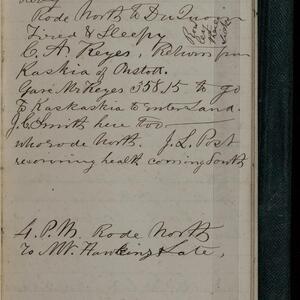 Rode North to Du Quoin
Tired & Sleepy
C. A. Keyes. Return from
Kaskia of
Gave Mr Keyes 358.15 to go
To Kaskaskia to Enter Land.
J. C. Smith here too
who rode North. J. L. Post
recovering health coming South
4. P. M. Rode North
To Mt. Hawkins & Late,